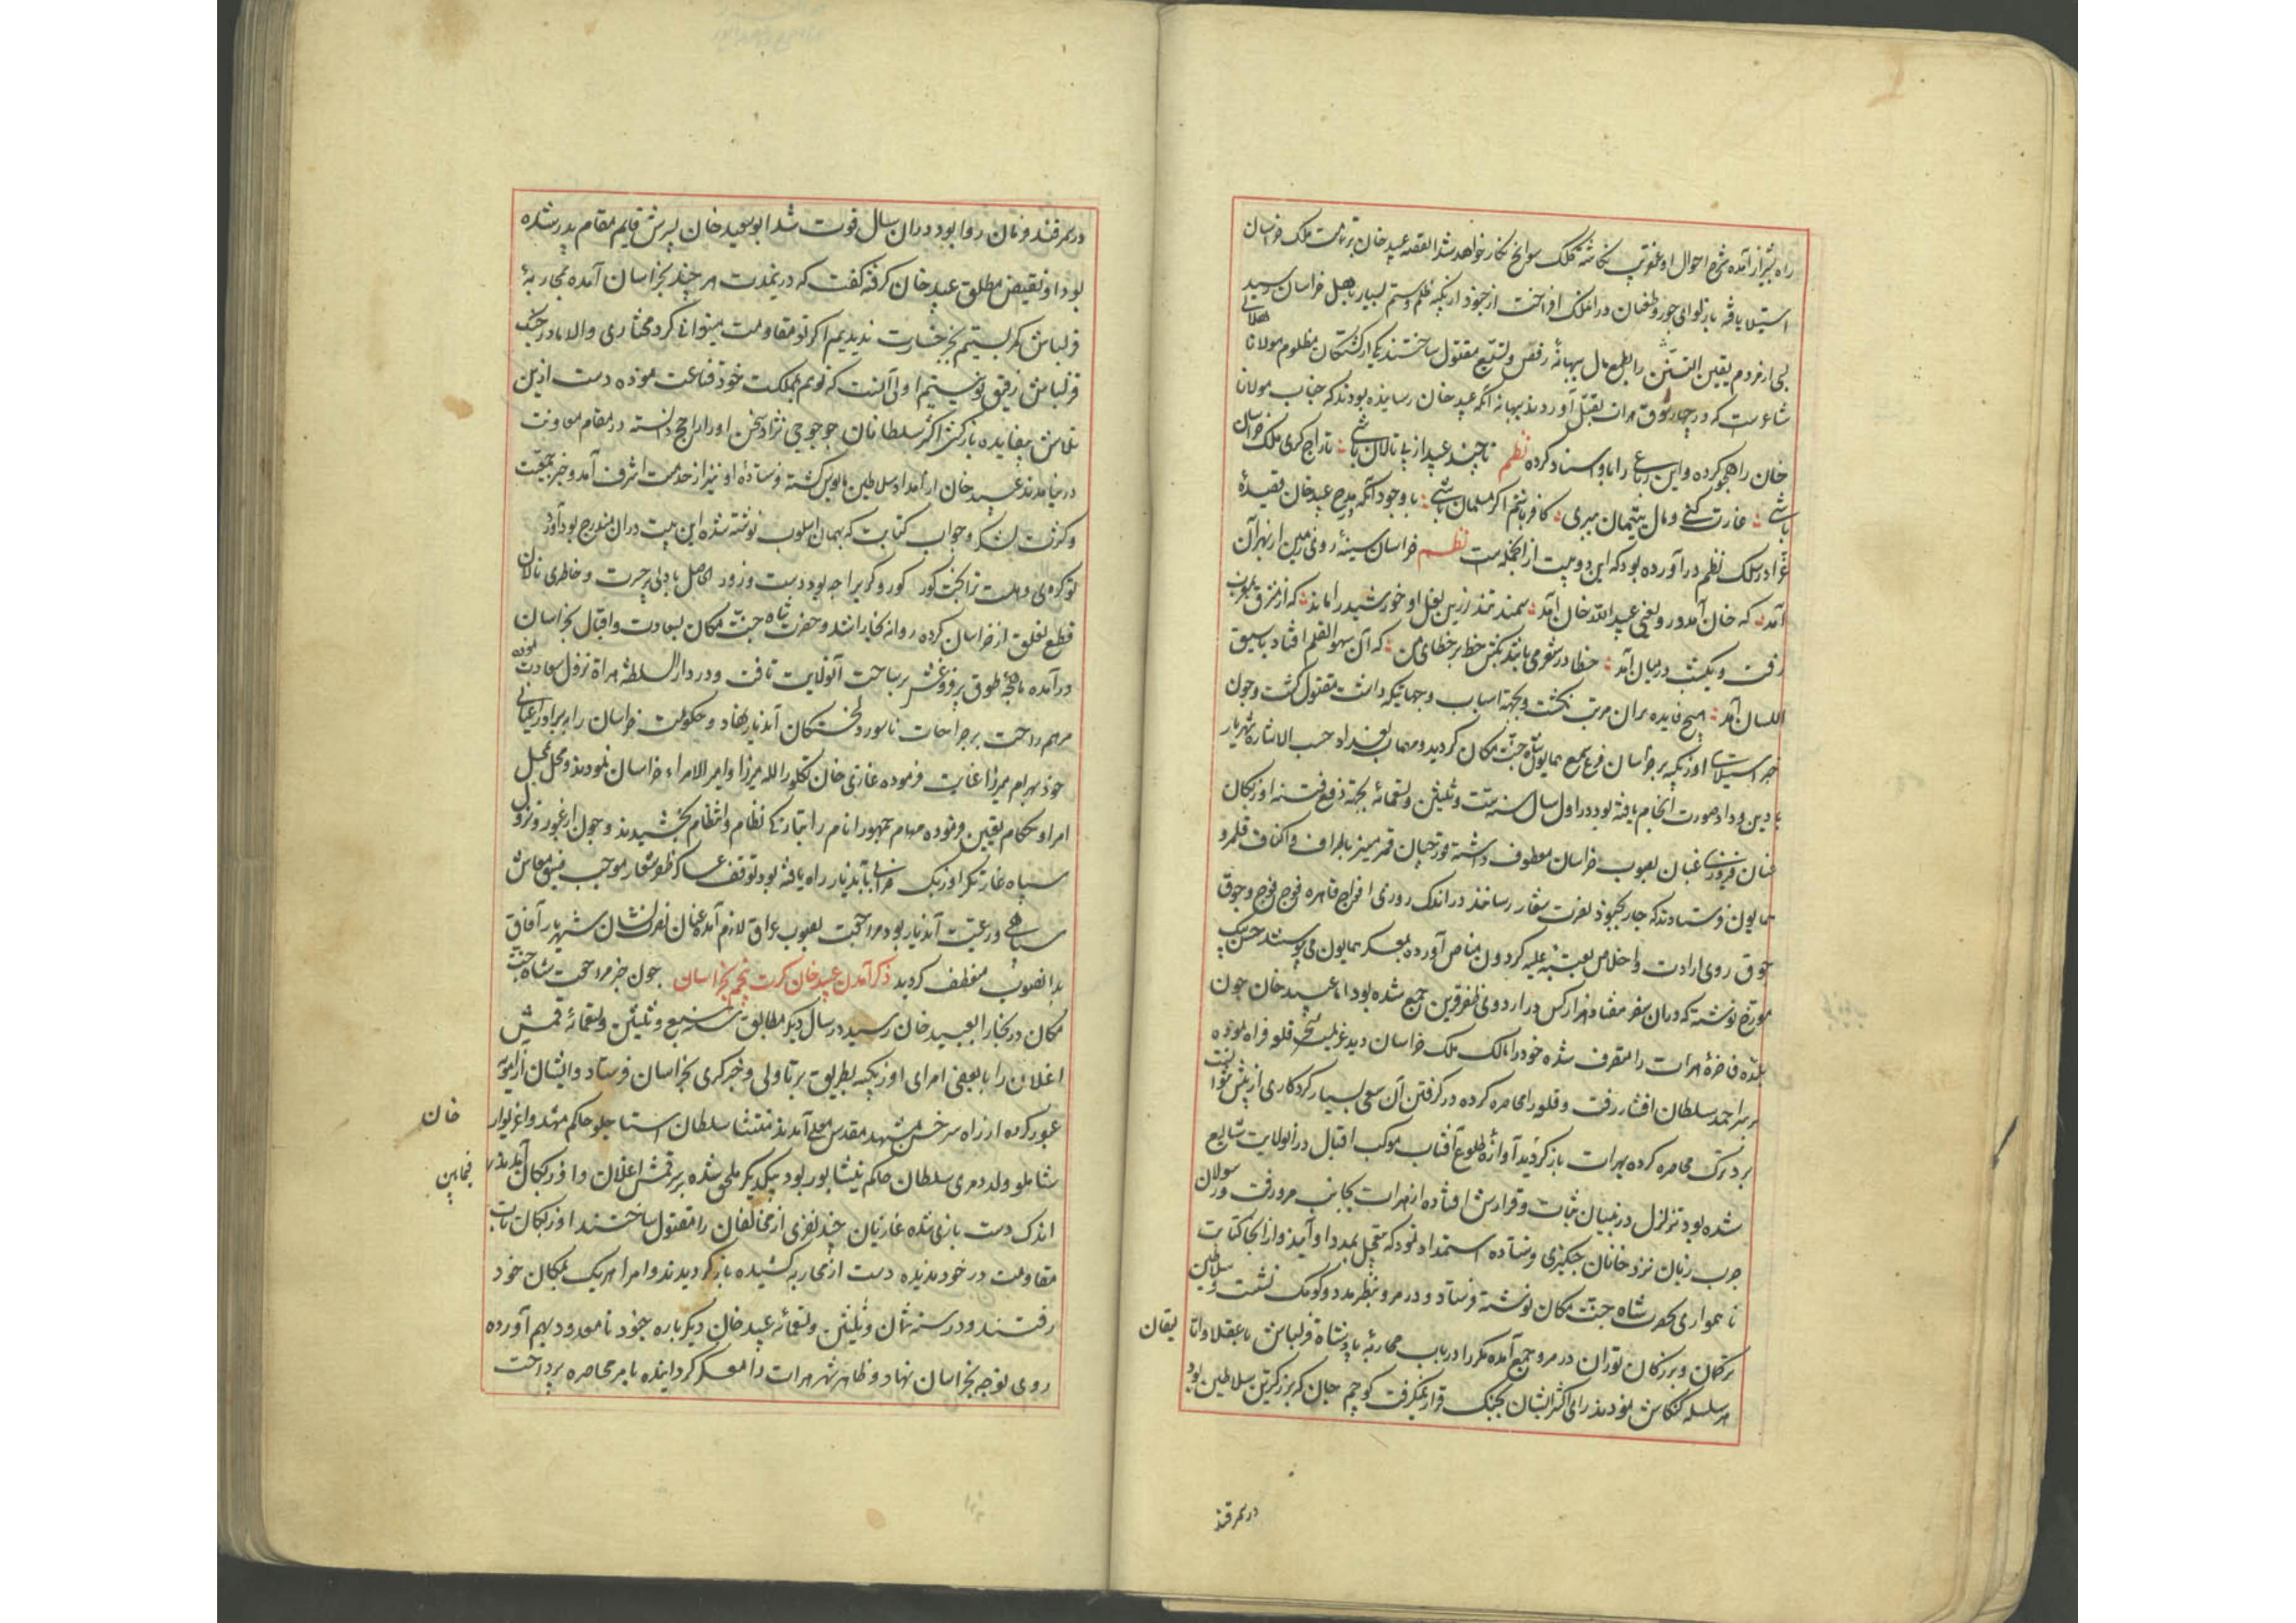 راه شیراز آمده شرح احوال او عنقریب نگاشته کلک سوانح نگار خواهد شد القصه عبید خان بر تمامت ملک خراسان
استیلا یافته باز لوای جور و طغیان در آن ملک افراخت از جنود اوزبکیه ظلم و ستم بسیار باهل خراسان رسید
بسی از مردم یقین التسنن را بطمع مال ببهانهٔ رفض و تشیع مقتول ساختند یکی از کشتگان مظلوم مولانا هلالی
شاعرست که در چهارسوق هرات بقتل آوردند ببهانه آنکه عبید خان رسانیده بودند که جناب مولانا
خان را هجو کرده و این رباعی را باو اسناد کرده نظم تا چند عبید از پی تالان باشی : تاراج کری ملک خراسان
باشی : غارت کنی و مال یتیمان ببری : کافر باشم اگر مسلمان باشی : با وجود آنکه در مدح عبید خان قصیدهٔ
غرا در سلک نظم در آورده بود که این دو بیت از انجمله است نظم خراسان سینهٔ روی زمین از بهر آن
آمد : که خان آمد درو یعنی عبید الله خان آمد : سمند تند زرین نعل او خورشید را ماند : که از مشرق بمغرب
رفت و یکشب در میان آمد : خطا در شعر می باشد بکش خط بر خطای من : که آن سهو القلم افتاد یا سبق
اللسان آمد : هیچ فایده بران مرتب نگشت و بجهة اسباب و جهاتیکه داشت مقتول گشت و چون
خبر استیلای اوزبکیه بر خراسان فرع سمع همایون شاه جنت مکان گردید و مهمات بغداد حسب الاشاره شهریار
با دین و داد صورت انجام یافته بود در اول سال سنه ست و ثلثین و تسعمائه بجهة دفع فتنه اوزبکان
عنان فیروزی عنان بصوب خراسان معطوف داشته تورچیان قمر مسیر باطراف و اکناف قلمرو
همایون فرستادند که جار بجنود نصرت شعار رسانند در اندک روزی افواج قاهره فوج فوج و جوق
جوق روی ارادت و اخلاص بعتبه علیه گردون مناص آورده بمعسکر همایون می پیوستند حسن بیک
مورخ نوشته که در آن سفر هفتاد هزار کس در اردوی ظفر قرین جمع شده بود اما عبید خان چون
بلده فاخرهٔ هرات را متصرف شده خود را مالک ملک خراسان دید عزیمت تسخیر قلعه فراه نموده
بر سر احمد سلطان افشار رفت و قلعه را محاصره کرده در گرفتن آن سعی بسیار کرد کاری از پیش نتوانست
برد ترک محاصره کرده بهرات باز گردید آوازهٔ طلوع آفتاب موکب اقبال در انولایت شایع
شده بود تزلزل در بنیان ثبات و قرارش افتاده از هرات بجانب مرو رفت و رسولان
چرب زبان نزد خانان چنگیزی فرستاده استمداد نمود که بتعجیل بمدد او آیند و از انجا کتابت
ناهمواری بحضرت شاه جنت مکان نوشته فرستاد و در مرو بنظر مدد و کومک نشست و سلاطین
ترکمان و بزرگان توران در مرو جمع آمده مکررا در باب محاربهٔ پادشاه قزلباش با عقلا و اتا لیقان
هر سلسله کنگاش نمودند رای اکثر ایشان بجنگ قرار نمیگرفت کوچم خان که بزرگترین سلاطین بود
در سمرقند
در سمرقند فرمان روا بود در ان سال فوت شد ابو سعید خان پسرش قایم مقام پدر شده
بود او نقیض مطلق عبید خان گرفته گفت که درینمدت هر چند بخراسان آمده محاربهٔ
قزلباش کمر بستیم بجز خسارت ندیدیم اگر تو مقاومت میتوانی کرد مختاری والا ما در جنگ
قزلباش رفیق تو نیستیم اولی آنست که تو هم بمملکت خود قناعت نموده دست ازین
تلاش بیفایده باز کش اکثر سلطانان جوجی نژاد سخن او را راجح دانسته در مقام معاونت
در نیامدند عبید خان از امداد سلاطین مایوس گشته فرستادهٔ او نیز از خدمت اشرف آمد و خبر جمعیت
و کثرت لشکر و جواب کتابت که بهمان اسلوب نوشته شده این بیت در ان مندرج بود آورد
تو کردهی دست ترا بخت کور کور و کر را چه بود دست و زور الحاصل با دلی پر حسرت و خاطری نالان
قطع تعلق از خراسان کرده روانه بخارا شد و حضرت شاه جنت مکان بسعادت و اقبال بخراسان
در آمده ماهچهٔ طوق پر فروغش بر ساحت آنولایت تافت و در دار السلطنه هراة نزول سعادت نموده
مرهم راحت بر جراحات ناسور دلخستگان آندیار نهاد و حکومت خراسان را به برادر اعیانی
خود بهرام میرزا عنایت فرموده غازی خان تکلو را لله میرزا و امیر الامراء خراسان نمودند و محل بمحل
امرا و حکام تعیین فرموده مهام جمهور انام را بتازگی نظام و انتظام بخشیدند و چون از عبور و نزول
سپاه غارتگر اوزبک خرابی بآندیار راه یافته بود توقف عساکر ظفر شعار موجب ضیق معاش
سپاهی و رعیت آندیار بود مراجعت بصوب عراق لازم آمده عنان نصرت نشان شهریار آفاق
بدانصوب منعطف گردید ذکر آمدن عبید خان کرت پنجم بخراسان چون خبر مراجعت شاه جنت
مکان در بخارا بعبید خان رسید در سال دیگر مطابق سنه سبع و ثلثین و تسعمائه قمش
اغلان را با بعضی امرای اوزبکیه بطریق برتاولی و خبر گیری بخراسان فرستاد و ایشان از آمویه
عبور کرده از راه سرخس بمشهد مقدس معلی آمدند منتشا سلطان استاجلو حاکم مشهد و اغزیوار خان
شاملو ولد دمری سلطان حاکم نیشابور بود بیکدیگر ملحق شده بر سر قمش اغلان و اوزبکان آمدند فیمابین
اندک دست بازی شده غازیان چند نفری از مخالفان را مقتول ساختند اوزبکان تاب
مقاومت در خود ندیده دست از محاربه کشیده باز گردیدند و امرا هر یک بمکان خود
رفتند و در سنه ثمان و ثلثین و تسعمائه عبید خان دیگر باره جنود نامعدود بهم آورده
روی توجه بخراسان نهاد و ظاهر شهر هرات را معسکر گردانیده بامر محاصره پرداخت